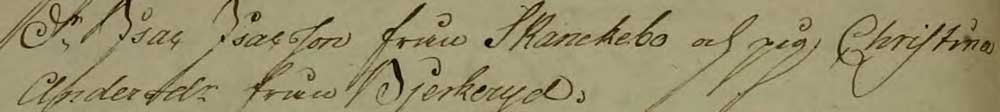 Dr. Isac Isacsson från Skanckebo och pig. Christina
Andersdr från Bjerkeryd.